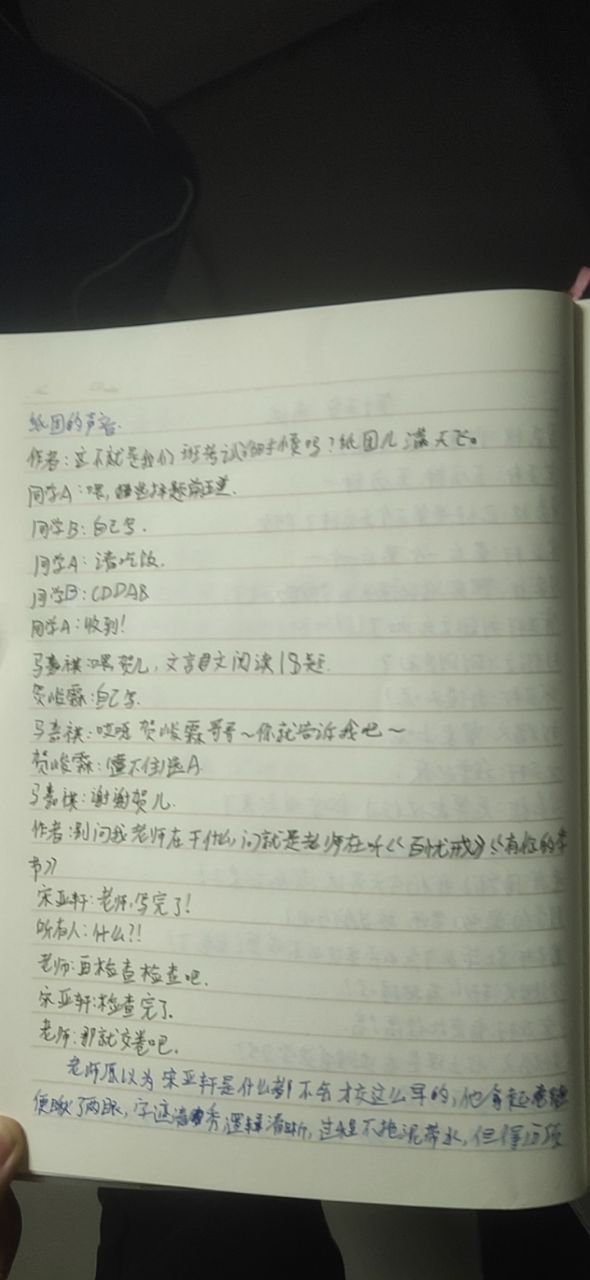 纸团的声音.
作者:这不就是我们班考试的时候吗?纸团儿满天飞。
同学A:喂,选择题前五道.
同学B:自己写.
同学A:请吃饭.
同学B:CDDAB
同学A:收到!
马嘉祺:喂贺儿,文言文阅读18题.
贺峻霖:自己写.
马嘉祺:哎呀 贺峻霖哥哥~你就告诉我吧~
贺峻霖:懂不住选A.
马嘉祺:谢谢贺儿.
作者:别问我老师在干什么,问就是老师在听《百忧戒》《有你的季
节》
宋亚轩:老师,写完了!
所有人:什么?!
老师:再检查检查吧.
宋亚轩:检查完了.
老师:那就交卷吧.
老师原以为宋亚轩是什么都不会才交这么早的,他拿起卷
便瞅了两眼,字迹清秀逻辑清晰,过程不拖泥带水,但